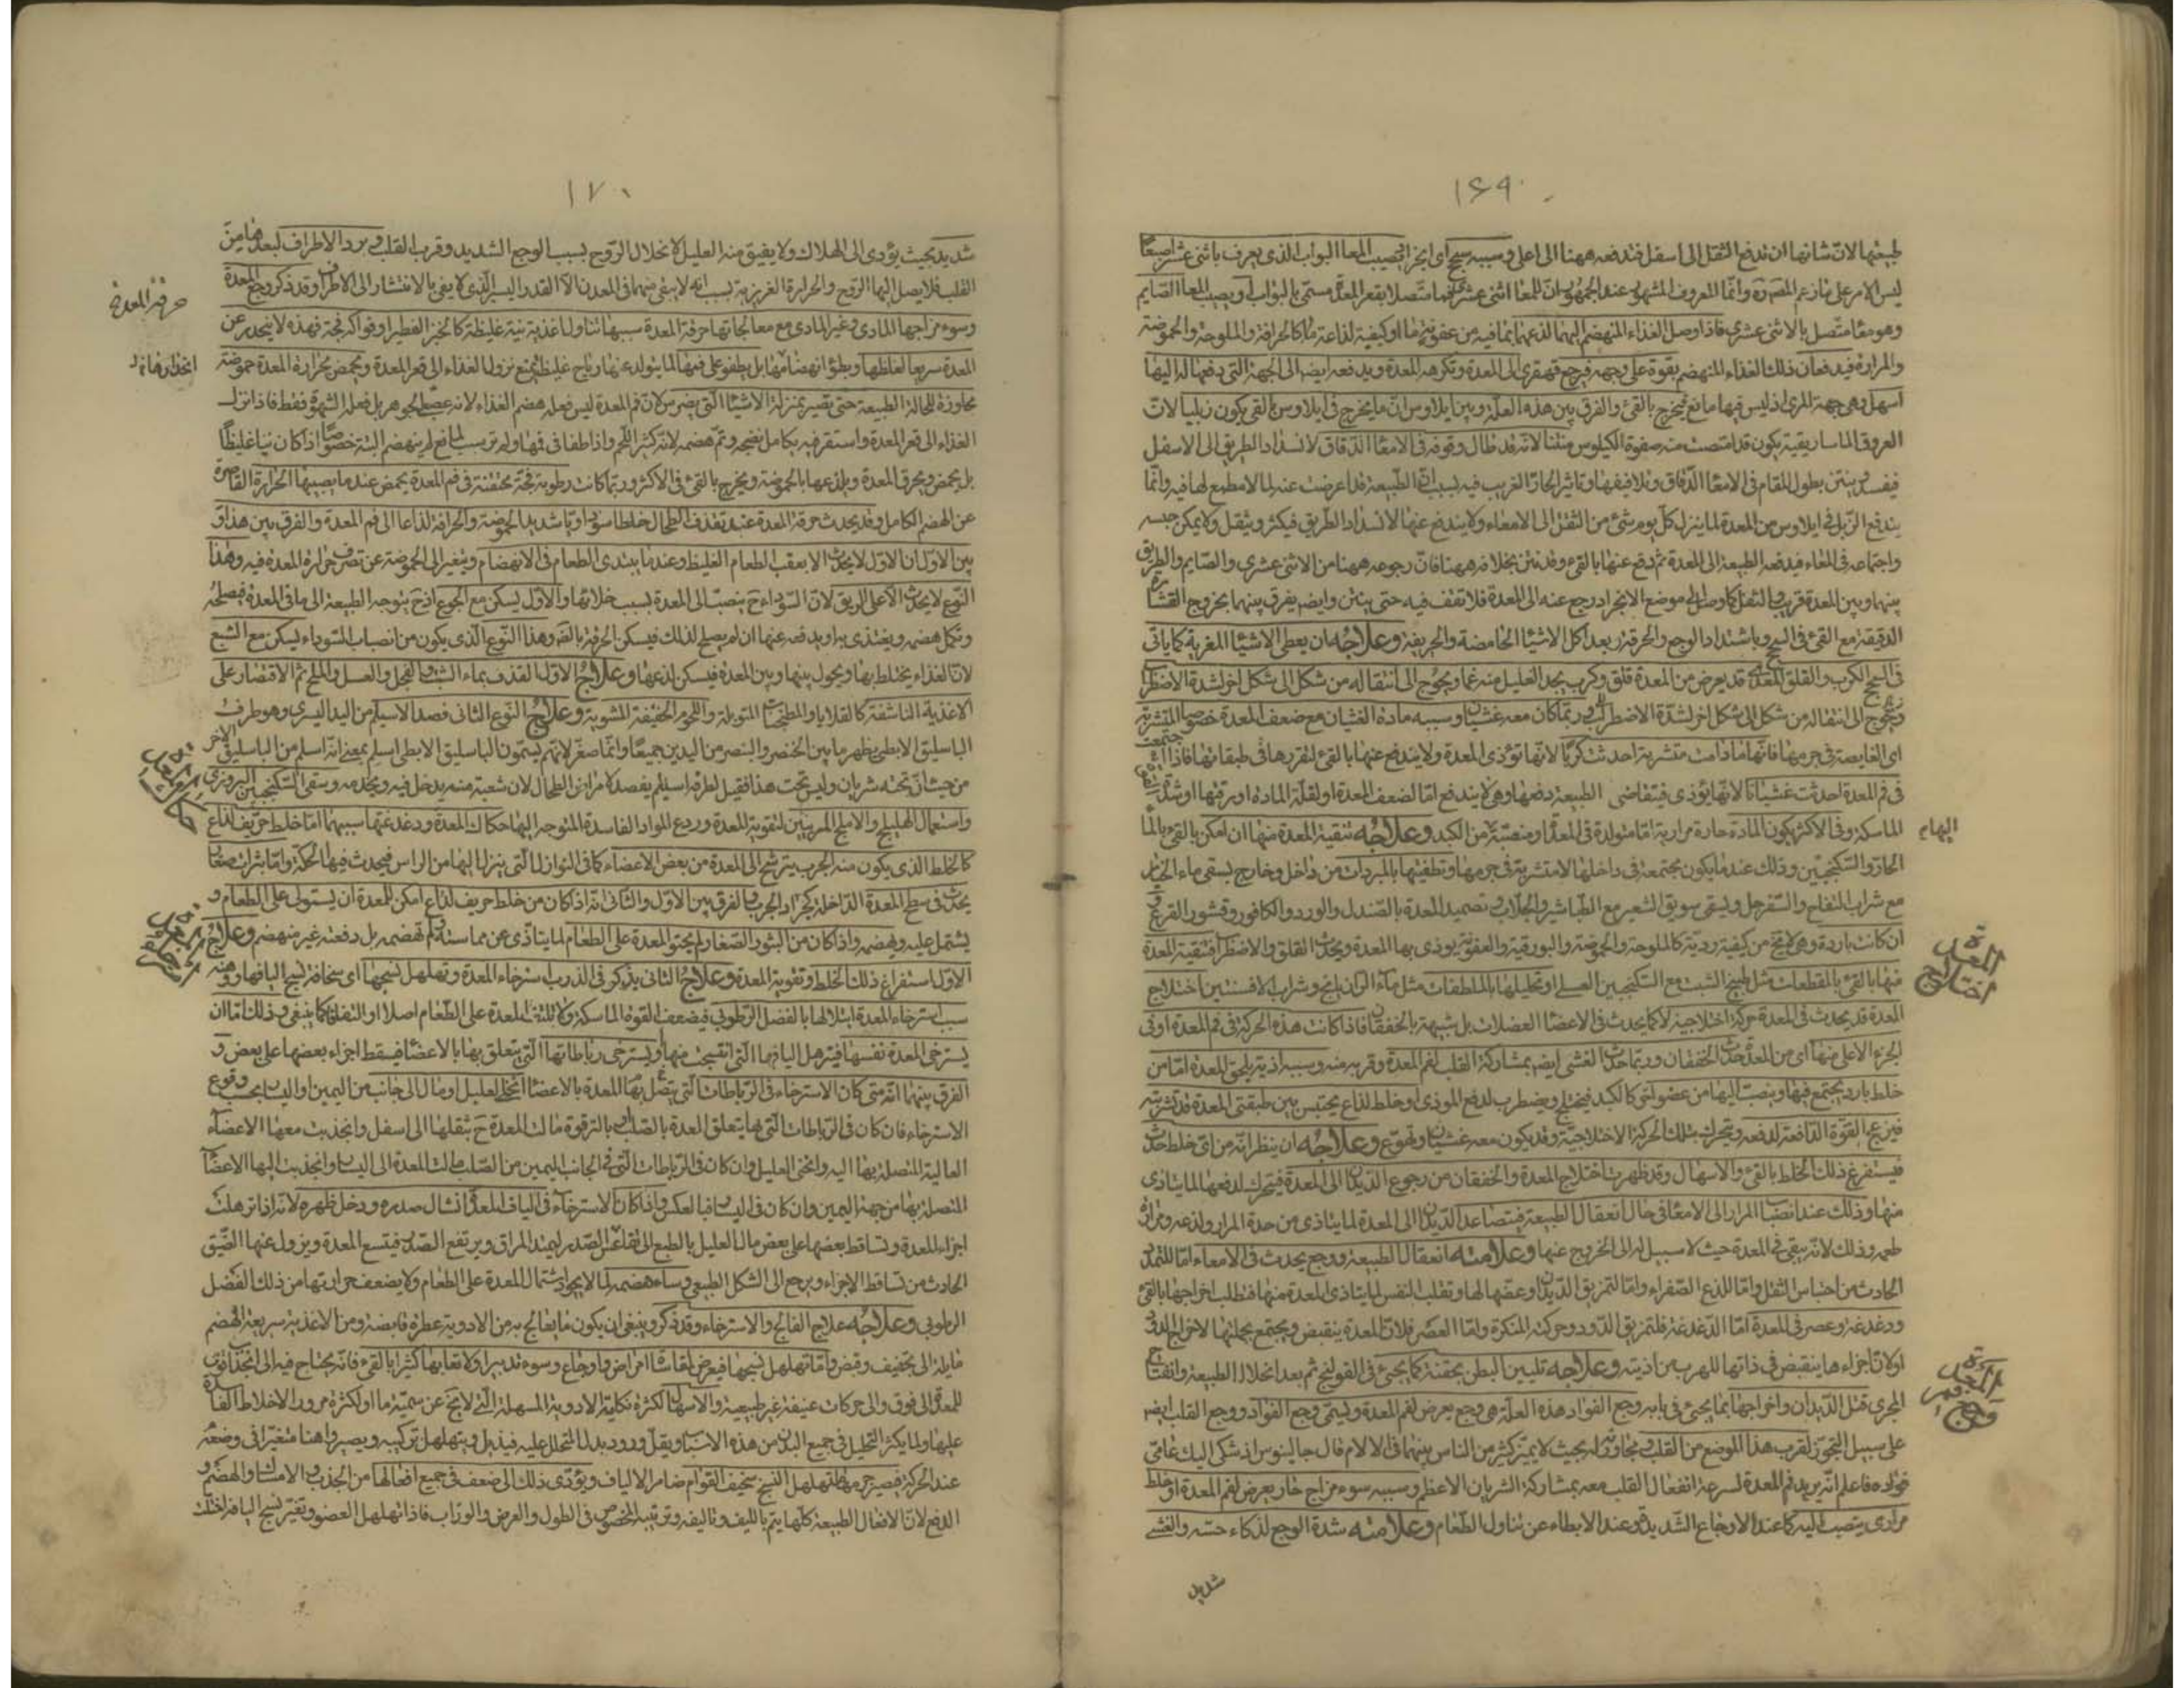 ١٦٩
طبيعتها لان شانها ان تدفع الثقل الى اسفل فتدفعه ههنا الى اعلى وسببه سحج اى انجراد يصيب المعا البواب الذى يعرف باثنى عشر اصبعا
ليس الامر على ما زعم المص وانما المعروف المشهور عند الجمهور ان للمعا اثنى عشرى فما متصلا بقعر المعدة مسمى بالبواب او يصيب المعا الصايم
وهو معا متصل بالاثنى عشرى فاذا وصل الغذاء المنهضم اليهما لذعهما بما فيه من عفونة ما او كيفية لذاعة ما كالحرافة والملوحة والحموضة
والمرارة فيدفعان ذلك الغذاء المنهضم بقوة على وجهه فيرجع قهقرى الى المعدة وتكرهه المعدة ويدفعه ايضا الى الجهة التى دفعها له اليها
اسهل وهى جهة المرى اذ ليس فيها مانع فيخرج بالقئ والفرق بين هذه العلة وبين ايلاوس ان ما يخرج فى ايلاوس بالقى يكون زبليا لان
العروق الماساريقية يكون قد امتصت منه صفوة الكيلوس منتنا لانه قد طال وقوفه فى الامعا الدقاق لانسداد الطريق الى الاسفل
فيفسد وينتن بطول المقام فى الامعا الدقاق وتلافيفها وتاثير الحار الغريب فيه لسبب ان الطبيعة قد اعرضت عنه لما لا مطمع لها فيه وانما
يندفع الزبل فى ايلاوس من المعدة لما ينزل كل يوم شئ من الثفل الى الامعاء ولا يندفع عنها لانسداد الطريق فيكثر ويثقل ولا يمكن حبسه
واجتماعه فى المعاء فيدفعه الطبيعة الى المعدة ثم دفع عنها بالقئ وقد نتن بخلافه ههنا فان رجوعه ههنا من الاثنى عشرى والصايم والطريق
بينهما وبين المعدة قريب والثفل كما وصل الى موضع الانجراد رجع عنه الى المعدة فلا تقف فيه حتى ينتن وايضا يفرق بينهما بخروج القشارة
الدقيقة مع القئ فى السحج وباشتداد الوجع والحرقة بعد اكل الاشيا الحامضة والحريفة وعلاجه ان يعطى الاشيا المغرية كما ياتى
فى السحج الكرب والقلق المعدى قد يعرض من المعدة قلق وكرب يجد العليل منه غما ويحوج الى انتقاله من شكل الى شكل اخر لشدة الاضطراب
ويحوج الى انتقاله من شكل الى شكل اخر لشدة الاضطراب وربما كان معه غشيان وسببه مادة الغشيان مع ضعف المعدة خصوصا المتشربة
اى الغايصة فى جرمها فانها ما دامت متشربة احدثت كربا لانها تؤذى المعدة ولا يندفع عنها بالقئ لتقررها فى طبقاتها فاذا اجتمعت
فى فم المعدة احدثت غشيانا لانها يؤذى فيتقاضى الطبيعة دفعها وهى لا يندفع اما لضعف المعدة او لقلة المادة او رقتها او شدة
الماسكة وفى الاكثر يكون المادة حارة مرارية اما متولدة فى المعدة او منصبة من الكبد وعلاجه تنقية المعدة منها ان امكن بالقئ بالماء
الحار والسكنجبين وذلك عند ما يكون مجتمعة فى داخلها لا متشربة فى جرمها وتطفيتها بالمبردات من داخل وخارج يسقى ماء الخيار
مع شراب التفاح والسفرجل ويسقى سويق الشعير مع الطباشير والجلاب وتضميد المعدة بالصندل والورد والكافور وقشور القرع
ان كانت باردة وهى لا يخ من كيفية ردية كالملوحة والحموضة والبورقية والعفونة يوذى بها المعدة ويحدث القلق والاضطراب فتنقية المعدة
منها بالقئ بالمقطعات مثل طبيخ الشبت مع السكنجبين العسلى او تحليلها بالملطفات مثل ماء الرازيانج وشراب الافسنتين اختلاج
المعدة قد يحدث فى المعدة حركة اختلاجية لا كما يحدث فى الاعضا العضلات بل شبيهة بالخفقان فاذا كانت هذه الحركة فى فم المعدة او فى
الجزء الاعلى منها اى من المعدة حدث الخفقان وربما حدث الغشى ايضا بمشاركة القلب لفم المعدة وقربه منه وسببه اذية يلحق المعدة اما من
خلط بارد يجتمع فيها وينصب اليها من عضو اخر كالكبد فيختلج ويضطرب لدفع الموذى او خلط لذاع يحتبس بين طبقتى المعدة قد تشربته
فيزعج القوة الدافعة لدفعه ويتحرك بتلك الحركة الاختلاجية وقد يكون معه غشيان وتهوع وعلاجه ان ينظر انه من اى خلط حدث
فيستفرغ ذلك الخلط بالقئ والاسهال وقد ظهرت اختلاج المعدة والخفقان من رجوع الديدان الى المعدة فيتحرك لدفعها لما يتاذى
منها وذلك عند انصباب المرار الى الامعا فى حال انعقال الطبيعة فيتصاعد الديدان الى المعدة لما يتاذى من حدة المرار ولذعه ومرارة
طعمه وذلك لانه يبقى فى المعدة حيث لا سبيل له الى الخروج عنها وعلامته انعقال الطبيعة ووجع يحدث فى الامعاء اما للتمدد
الحادث من احتباس الثفل واما للذع الصفراء واما لتمزيق الديدان وعضها لها وتقلب النفس لما يتاذى المعدة منها فتطلب اخراجها بالقئ
ودغدغة وعصر فى المعدة اما الدغدغة فلتمزيق الدود وحركته المنكرة واما العصر فلان المعدة ينقبض ويجتمع بجملتها لاخراج الدود
او لان اجزاءها ينقبض فى ذاتها للهرب من اذيته وعلاجه تليين البطن بحقنة كما يجئ فى القولنج ثم بعد انحلال الطبيعة وانفتاح
المجرى قتل الديدان واخراجها بما يجئ فى بابه وجع الفواد هذه العلة هى وجع يعرض لفم المعدة ويسمى وجع الفواد ووجع القلب ايضا
على سبيل التجوز لقرب هذا الموضع من القلب ومجاورته له بحيث لا يميز كثير من الناس بينهما فى الالام قال جالينوس اذ شكى اليك عامى
فواده فاعلم انه يريد فم المعدة لسرعة انفعال القلب معه بمشاركة الشريان الاعظم وسببه سوء مزاج حار يعرض لفم المعدة او خلط
مرارى ينصب اليه كما عند الاوجاع الشديدة وعند الابطاء عن تناول الطعام وعلامته شدة الوجع لذكاء حسه والغشى
شديد
الهام
اختلاج المعدة
وجع فم المعدة
١٧٠
شديد بحيث يؤدى الى الهلاك ولا يفيق منه العليل لانحلال الروح بسبب الوجع الشديد وقرب القلب وبرد الاطراف لبعدها من
القلب فلا يصل اليها الروح والحرارة الغريزية بسبب انه لا يبقى منهما فى المعدن الا القدر اليسير الذى لا يفى بالانتشار الى الاطراف وقد ذكر وجع المعدة
وسوء مزاجها المادى وغير المادى مع معالجاتها حرقة المعدة سببها تناول اغذية نية غليظة كالخبز الفطير او فواكه فجة فهذه لا ينحدر عن
المعدة سريعا لغلظها وبطؤ انهضامها بل يطفو على فمها لما يتولد عنها رياح غليظة يمنع نزول الغذاء الى قعر المعدة ويحمض بحرارة المعدة حموضة
مجاوزة للحالة الطبيعة حتى يصير بمنزلة الاشياء التى يضرس لان فم المعدة ليس فعله هضم الغذاء لانه عصبى الجوهر بل فعله الشهوة فقط فاذا نزل
الغذاء الى قعر المعدة واستقر فيه يكامل نضجه وتم هضمه لانه كثير اللحم واذا طفا فى فمها ولم يرسب لمانع لم ينهضم البتة خصوصا اذا كان نيا غليظا
بل يحمض ويحرق المعدة ويلذعها بالحموضة ويخرج بالقئ فى الاكثر وربما كانت رطوبة فجة محتقنة فى فم المعدة يحمض عندما يصيبها الحرارة القاصرة
عن الهضم الكامل وقد يحدث حرقة المعدة عند قذف الطحال خلطا سوداويا شديد الحموضة والحرافة لذاعا الى فم المعدة والفرق بين هذا و
بين الاول ان الاول لا يحدث الا بعقب الطعام الغليظ وعند ما يبتدى الطعام فى الانهضام ويتغير الى الحموضة عن تصرف حرارة المعدة فيه وهذا
النوع لا يحدث الا على الريق لان السوداء ح ينصب الى المعدة بسبب خلائها والاول يسكن مع الجوع اذ ح يتوجه الطبيعة الى ما فى المعدة فيصلحه
ويكمل هضمه ويغتذى به او يدفعه عنها ان لم يصلح لذلك فيسكن الحرقة بالقوة وهذا النوع الذى يكون من انصباب السوداء يسكن مع الشبع
لان الغذاء يختلط بها ويحول بينها وبين المعدة فيسكن لذعها وعلاج الاول القذف بماء الشبت والفجل والعسل والملح ثم الاقتصار على
الاغذية الناشفة كالقلايا والمطجنات المتوبلة واللحوم الخفيفة المشوية وعلاج النوع الثانى فصد الاسيلم من اليد اليسرى وهو طرف
الباسليق الابطى يظهر ما بين الخنصر والبنصر من اليدين جميعا وانما صغر لانهم يسمون الباسليق الابطى اسيلم بمعنى انه اسلم من الباسليق الاخر
من حيث ان تحته شريان وليس تحت هذا فقيل لطرفه اسيلم يفصد لامراض الطحال لان شعبة منه يدخل فيه ويخدمه ويسقى السكنجبين البزورى
واستعمال الهليلج والاملج المربيين لتقوية المعدة وردع المواد الفاسدة المتوجه اليها حكاك المعدة ودغدغتها سببهما اما خلط حريف لذاع
كالخلط الذى يكون منه الجرب يترشح الى المعدة من بعض الاعضاء كما فى النوازل التى ينزل اليها من الراس فيحدث فيها الحكة واما بثرات صغار
يحدث فى سطح المعدة الداخلة كجراد الجرب والفرق بين الاول والثانى انه اذا كان من خلط حريف لذاع امكن للمعدة ان يستولى على الطعام و
يشتمل عليه ويهضمه واذا كان من البثور الصغار لم يحتو المعدة على الطعام لما يتاذى عن مماسته ولم تهضمه بل دفعته غير منهضم وعلاج
الاول استفراغ ذلك الخلط وتقوية المعدة وعلاج الثانى يذكر فى الذرب استرخاء المعدة وتهلهل نسجها اى سخافة نسج اليافها وهنه
سبب استرخاء المعدة ابتلالها بالفضل الرطوبى فيضعف القوة الماسكة ولا يلتف المعدة على الطعام اصلا او التفافا كما ينبغى وذلك اما ان
يسترخى المعدة نفسها فيترهل اليافها التى انتسجت منها او يسترخى رباطاتها التى يتعلق بها بالاعضا فيسقط اجزاء بعضها على بعض و
الفرق بينهما انه متى كان الاسترخاء فى الرباطات التى يتصل بها المعدة بالاعضا انحط العليل ومال الى جانب من اليمين واليسار بحسب وقوع
الاسترخاء فان كان فى الرباطات التى بها يتعلق المعدة بالصلب او بالترقوة مالت المعدة ح بثقلها الى اسفل وانجذبت معها الاعضاء
العالية المتصلة بها اليه وانحنى العليل وان كان فى الرباطات التى فى الجانب اليمين من الصلب مالت المعدة الى اليسار وانجذبت اليها الاعضا
المتصلة بها من جهة اليمين وان كان فى اليسار فبالعكس واذا كان الاسترخاء فى الياف المعدة انشال صدره ودخل ظهره لانه اذا ترهلت
اجزاء المعدة وتساقط بعضها على بعض مال العليل بالطبع الى تقاعس الصدر ليمتد المراق ويرتفع الصدر فيتسع المعدة ويزول عنها الضيق
الحادث من تساقط الاجزاء ويرجع الى الشكل الطبيعى وساء هضمه لما لا يجود اشتمال المعدة على الطعام ولا يضعف حرارتها من ذلك الفضل
الرطوبى وعلاجه علاج الفالج والاسترخاء وقد ذكر وينبغى ان يكون ما يعالج به من الادوية عطرة قابضة ومن الاغذية سريعة الهضم
مايلة الى تجفيف وقبض واما تهلهل نسجها فيعرض لمقاساة امراض واوجاع وسوء تدبير اولا تعابها كثيرا بالقئ فانه يحتاج فيه الى انجذاب
المعدة الى فوق والى حركات عنيفة غير طبيعية والاسهال لكثرة نكاية الادوية المسهلة التى لا يخ عن سمية ما او لكثرة مرور الاخلاط الفاسدة
عليها ولما يكثر التحليل فى جميع البدن من هذه الاسباب ويقل ورود بدل المتحلل عليه فيذبل ويتهلهل تركيبه ويصير واهنا متغيرا فى وضعه
عند الحركة فيصير جرمها متهلهل النسج سخيف القوام ضامر الالياف ويؤدى ذلك الى ضعف فى جميع افعالها من الجذب والامساك والهضم و
الدفع لان الافعال الطبيعة كلها يتم بالليف وتاليفه وترتيبه المخصوص فى الطول والعرض والوراب فاذا تهلهل العضو وتغير نسج اليافه اختلت
حرقة المعدة
حكاك المعدة
استرخاء المعدة